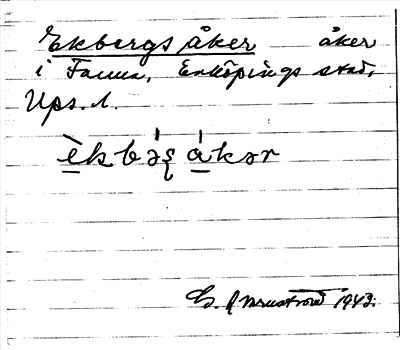 Ekbergs åker åker
i Fanna, Enköpings stad,
Ups. l.
èkbəș åkər
1943.